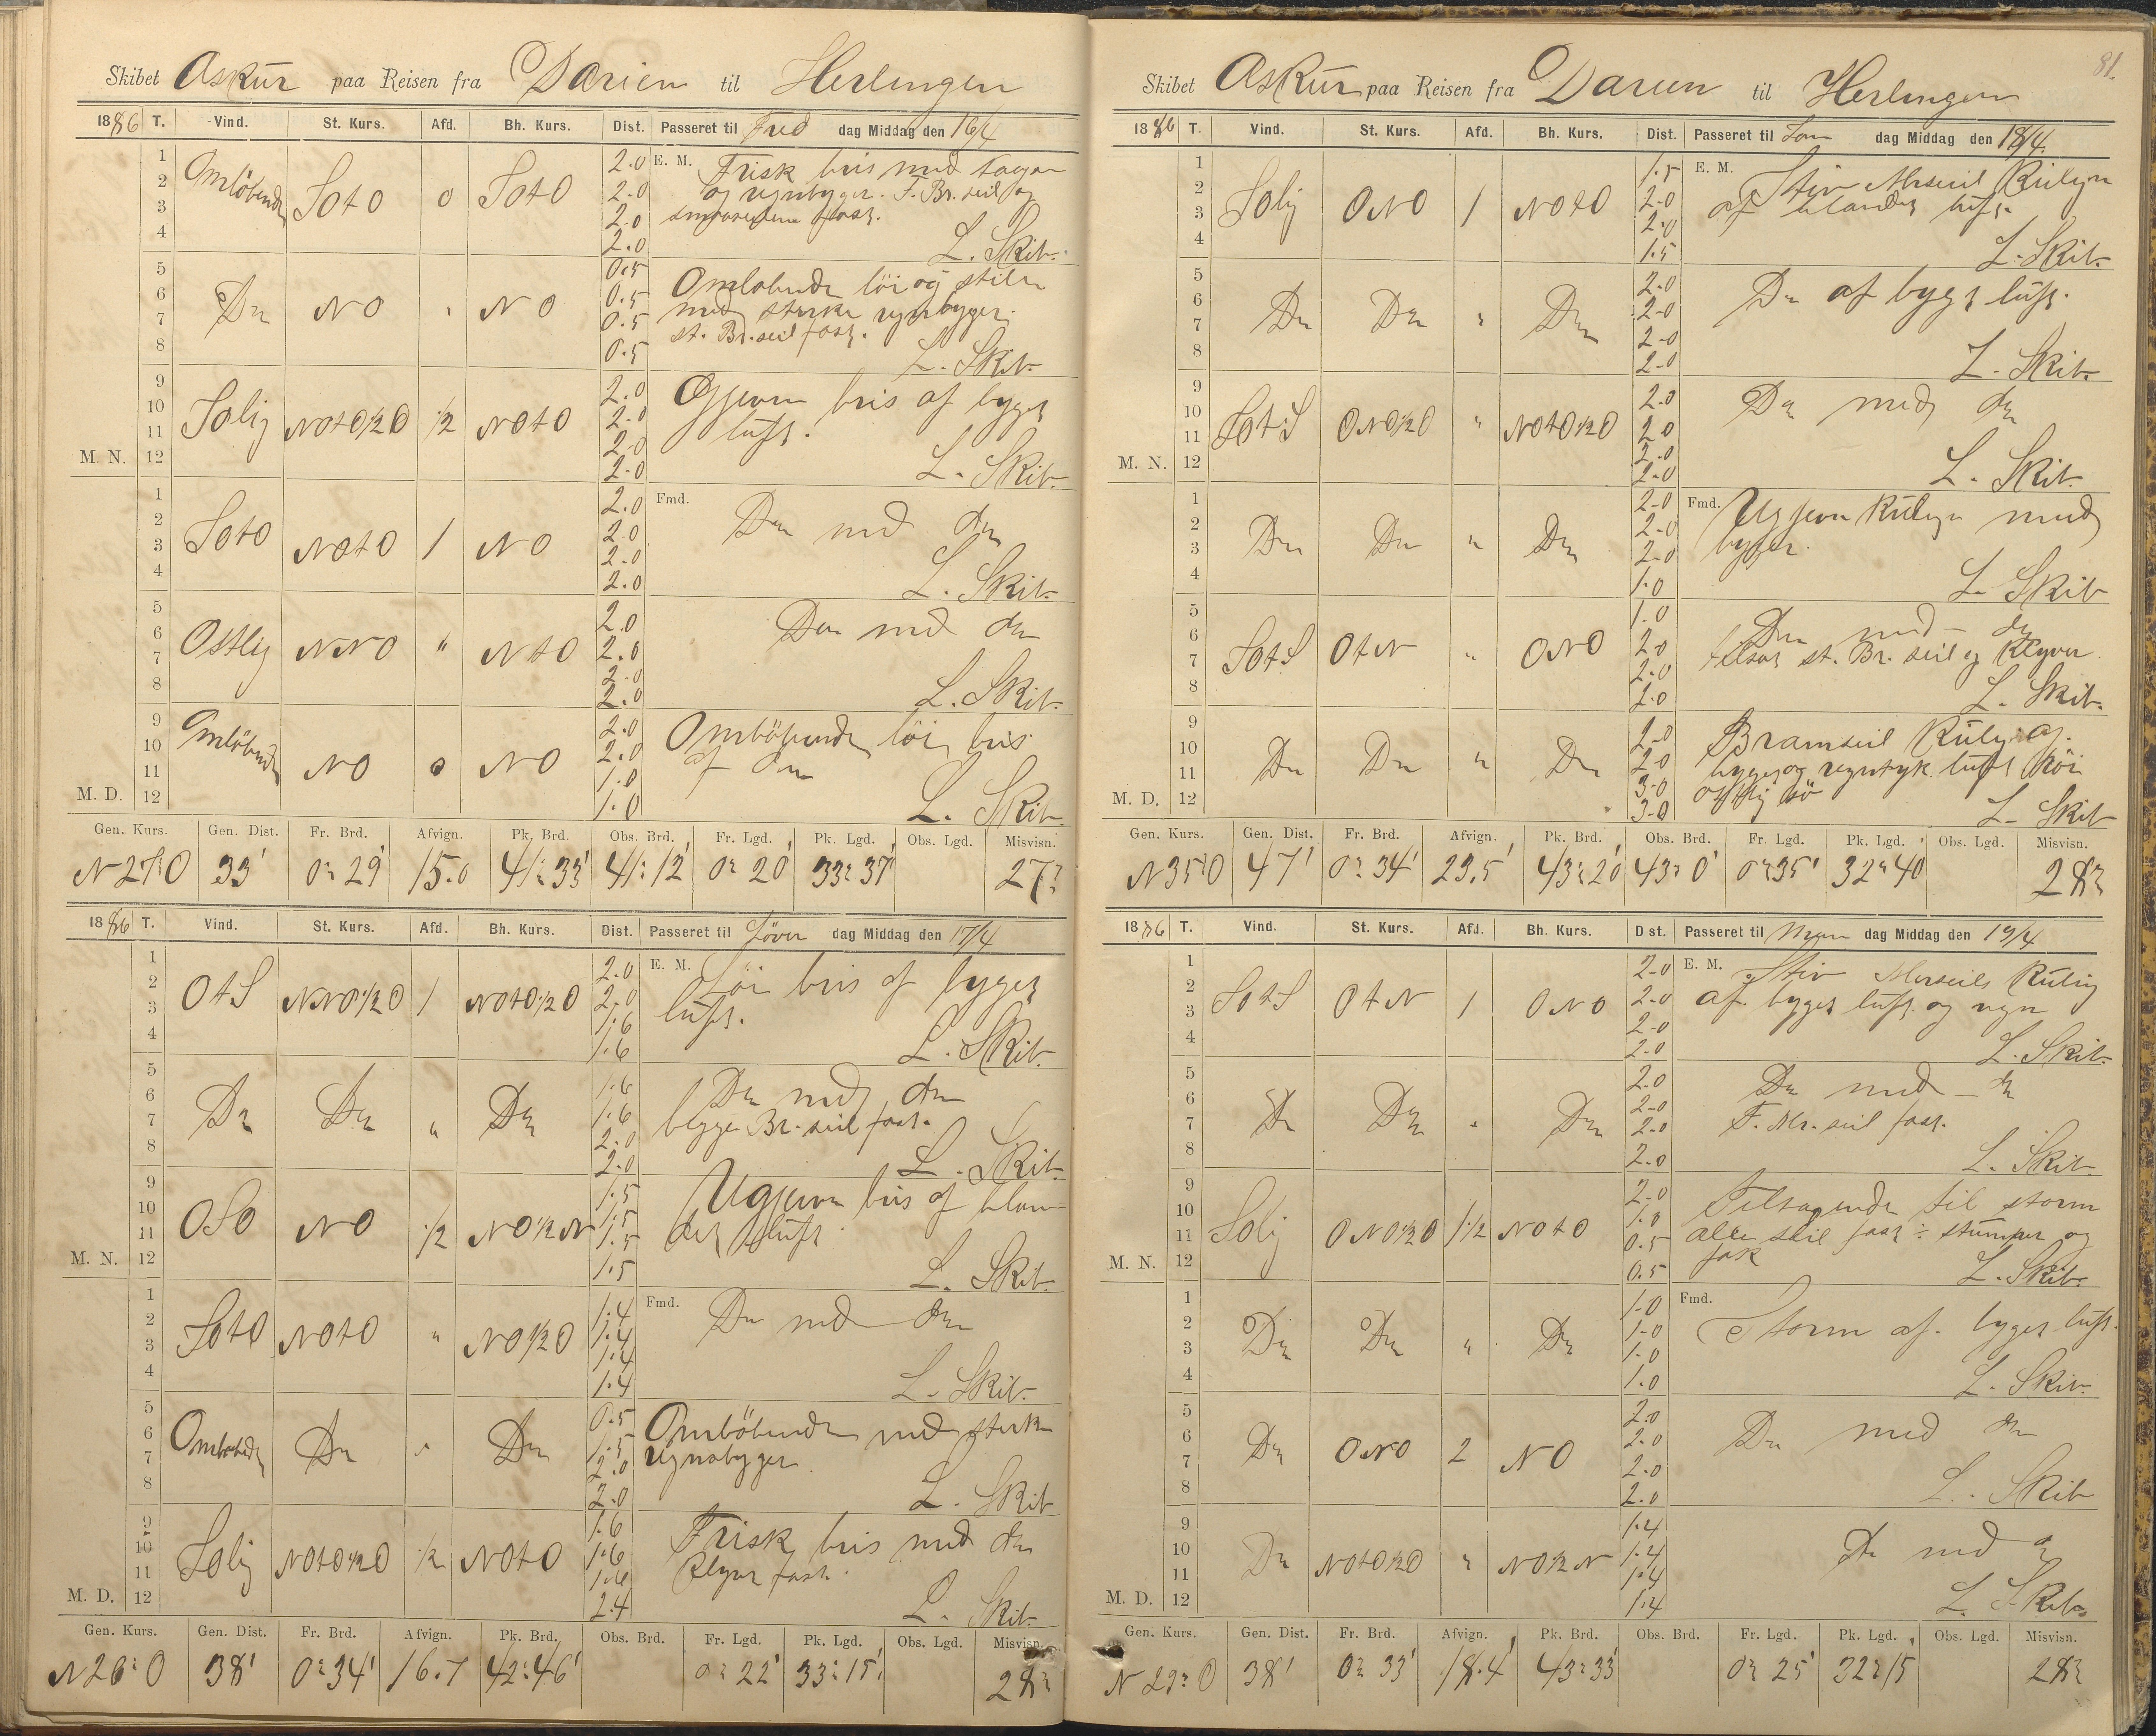 Skibet Askur paa Reisen fra Darien til Herlingen
1886 T. Vind. St. Kurs. Afd. Bh. Kurs. Dist. Passeret til Fre dag Middag den 16/4
1 2 3 4 Omløbende SOtO 0 SOtO 2.0 2.0 2.0 2.0
E. M. Frisk bris med
og regnbyger. F. Br. seil og
fast.
L. Skib.
5 6 7 8 Do NO " NO 0.5 0.5 0.5 0.5
Omløbende löi og stille
med sterke regnbyger.
st. Br. seil fast.
L. Skib.
M. N. 9 10 11 12 SOlig NOtO1/2O 1/2 NOtO 2.0 2.0 2.0 2.0
Ugjevn bris af byget
luft.
L. Skib.
1 2 3 4 SOtO NOtO 1 NO 2.0 2.0 2.0 2.0
Fmd. Do med do
L. Skib.
5 6 7 8 Ostlig NNO " NtO 2.0 2.0 2.0 2.0
Do med do
L. Skib.
M. D. 9 10 11 12 Omløbende NO 0 NO 2.0 2.0 1.0 1.0
Omløbende löi bris
af do
L. Skib.
Gen. Kurs. Gen. Dist. Fr. Brd. Afvign. Pk. Brd. Obs. Brd. Fr. Lgd. Pk. Lgd. Obs. Lgd. Misvisn.
N27°O 33' 0° 29' 15.0 41° 33' 41° 12' 0° 20' 33° 37' 27°
1886 T. Vind. St. Kurs. Afd. Bh. Kurs. Dist. Passeret til Löver dag Middag den 17/4
1 2 3 4 OtS NNO1/2O 1 NOtO1/2O 2.0 2.0 1.6 1.6
E. M. Löi bris af byget
luft.
L. Skib.
5 6 7 8 Do Do " Do 1.6 1.6 2.0 2.0
Do med do
begge Br. seil fast.
L. Skib.
M. N. 9 10 11 12 OSO NO 1/2 NO1/2N 1.5 1.5 1.5 1.5
Ugjevn bris af blan-
det luft
L. Skib.
1 2 3 4 SOtO NOtO " NO1/2O 1.4 1.4 1.4 1.4
Fmd. Do med do
L. Skib.
5 6 7 8 Omløbende Do " Do 0.5 1.5 2.0 2.0
Omløbende med sterke
regnbyger
L. Skib
M. D. 9 10 11 12 SOlig NOtO1/2O 1/2 NOtO 1.6 1.6 1.6 2.4
Frisk bris med do
Klyver fast.
L. Skib.
Gen. Kurs. Gen. Dist. Fr. Brd. Afvign. Pk. Brd. Obs. Brd. Fr. Lgd. Pk. Lgd. Obs. Lgd. Misvisn.
N26°O 38' 0° 34' 16.7 42° 46' 0° 22' 33° 15' 28°
81.
Skibet Askur paa Reisen fra Darien til Herlingen
1886 T. Vind. St. Kurs. Afd. Bh. Kurs. Dist. Passeret til Søn dag Middag den 18/4.
1 2 3 4 SOlig ONO 1 NOtO 1.5 2.0 2.0 1.5
E. M. Stiv Merseil Kuling
af blandet luft.
L. Skib.
5 6 7 8 Do Do " Do 2.0 2.0 2.0 2.0
Do af byget luft.
L. Skib.
M. N. 9 10 11 12 SOtS ONO1/2O " NOtO1/2O 2.0 2.0 2.0 2.0
Do med do
L. Skib.
1 2 3 4 Do Do " Do 2.0 2.0 2.0 1.0
Fmd. Ugjevn Kuling med
byger.
L. Skib
5 6 7 8 SOtS OtN " ONO 1.0 2.0 2.0 2.0
Do med do
tilsat st. Br. seil og Klyver.
L. Skib.
M. D. 9 10 11 12 Do Do " Do 2.0 2.0 3.0 3.0
Bramseil Kuling af
byget og regntyk luft höi
ostlig sö
L. Skib
Gen. Kurs. Gen. Dist. Fr. Brd. Afvign. Pk. Brd. Obs. Brd. Fr. Lgd. Pk. Lgd. Obs. Lgd. Misvisn.
N35°O 47' 0° 34' 23.5' 43° 20' 43° 0' 0° 35' 32° 40' 28°
1886 T. Vind. St. Kurs. Afd. Bh. Kurs. Dist. Passeret til Man dag Middag den 19/4
1 2 3 4 SOtS OtN 1 ONO 2.0 2.0 2.0 2.0
E. M. Stiv Merseils Kuling
af byget luft og regn
L. Skib.
5 6 7 8 Do Do " Do 2.0 2.0 2.0 2.0
Do med do
F. Mr. seil fast.
L. Skib
M. N. 9 10 11 12 SOlig ONO1/2O 1 1/2 NOtO 2.0 1.0 0.5 0.5
Tiltagende til storm
alle seil fast ÷ stumper og
fok
L. Skib.
1 2 3 4 Do Do " Do 1.0 1.0 1.0 1.0
Fmd. Storm af byget luft.
L. Skib.
5 6 7 8 Do ONO 2 NO 2.0 2.0 2.0 2.0
Do med do
L. Skib
M. D. 9 10 11 12 Do NOtO1/2O " NO1/2N 1.4 1.4 1.4 1.4
Do med do
L. Skib.
Gen. Kurs. Gen. Dist. Fr. Brd. Afvign. Pk. Brd. Obs. Brd. Fr. Lgd. Pk. Lgd. Obs. Lgd. Misvisn.
N29°O 38' 0° 33' 18.4' 43° 33' 0° 25' 32° 15 28°